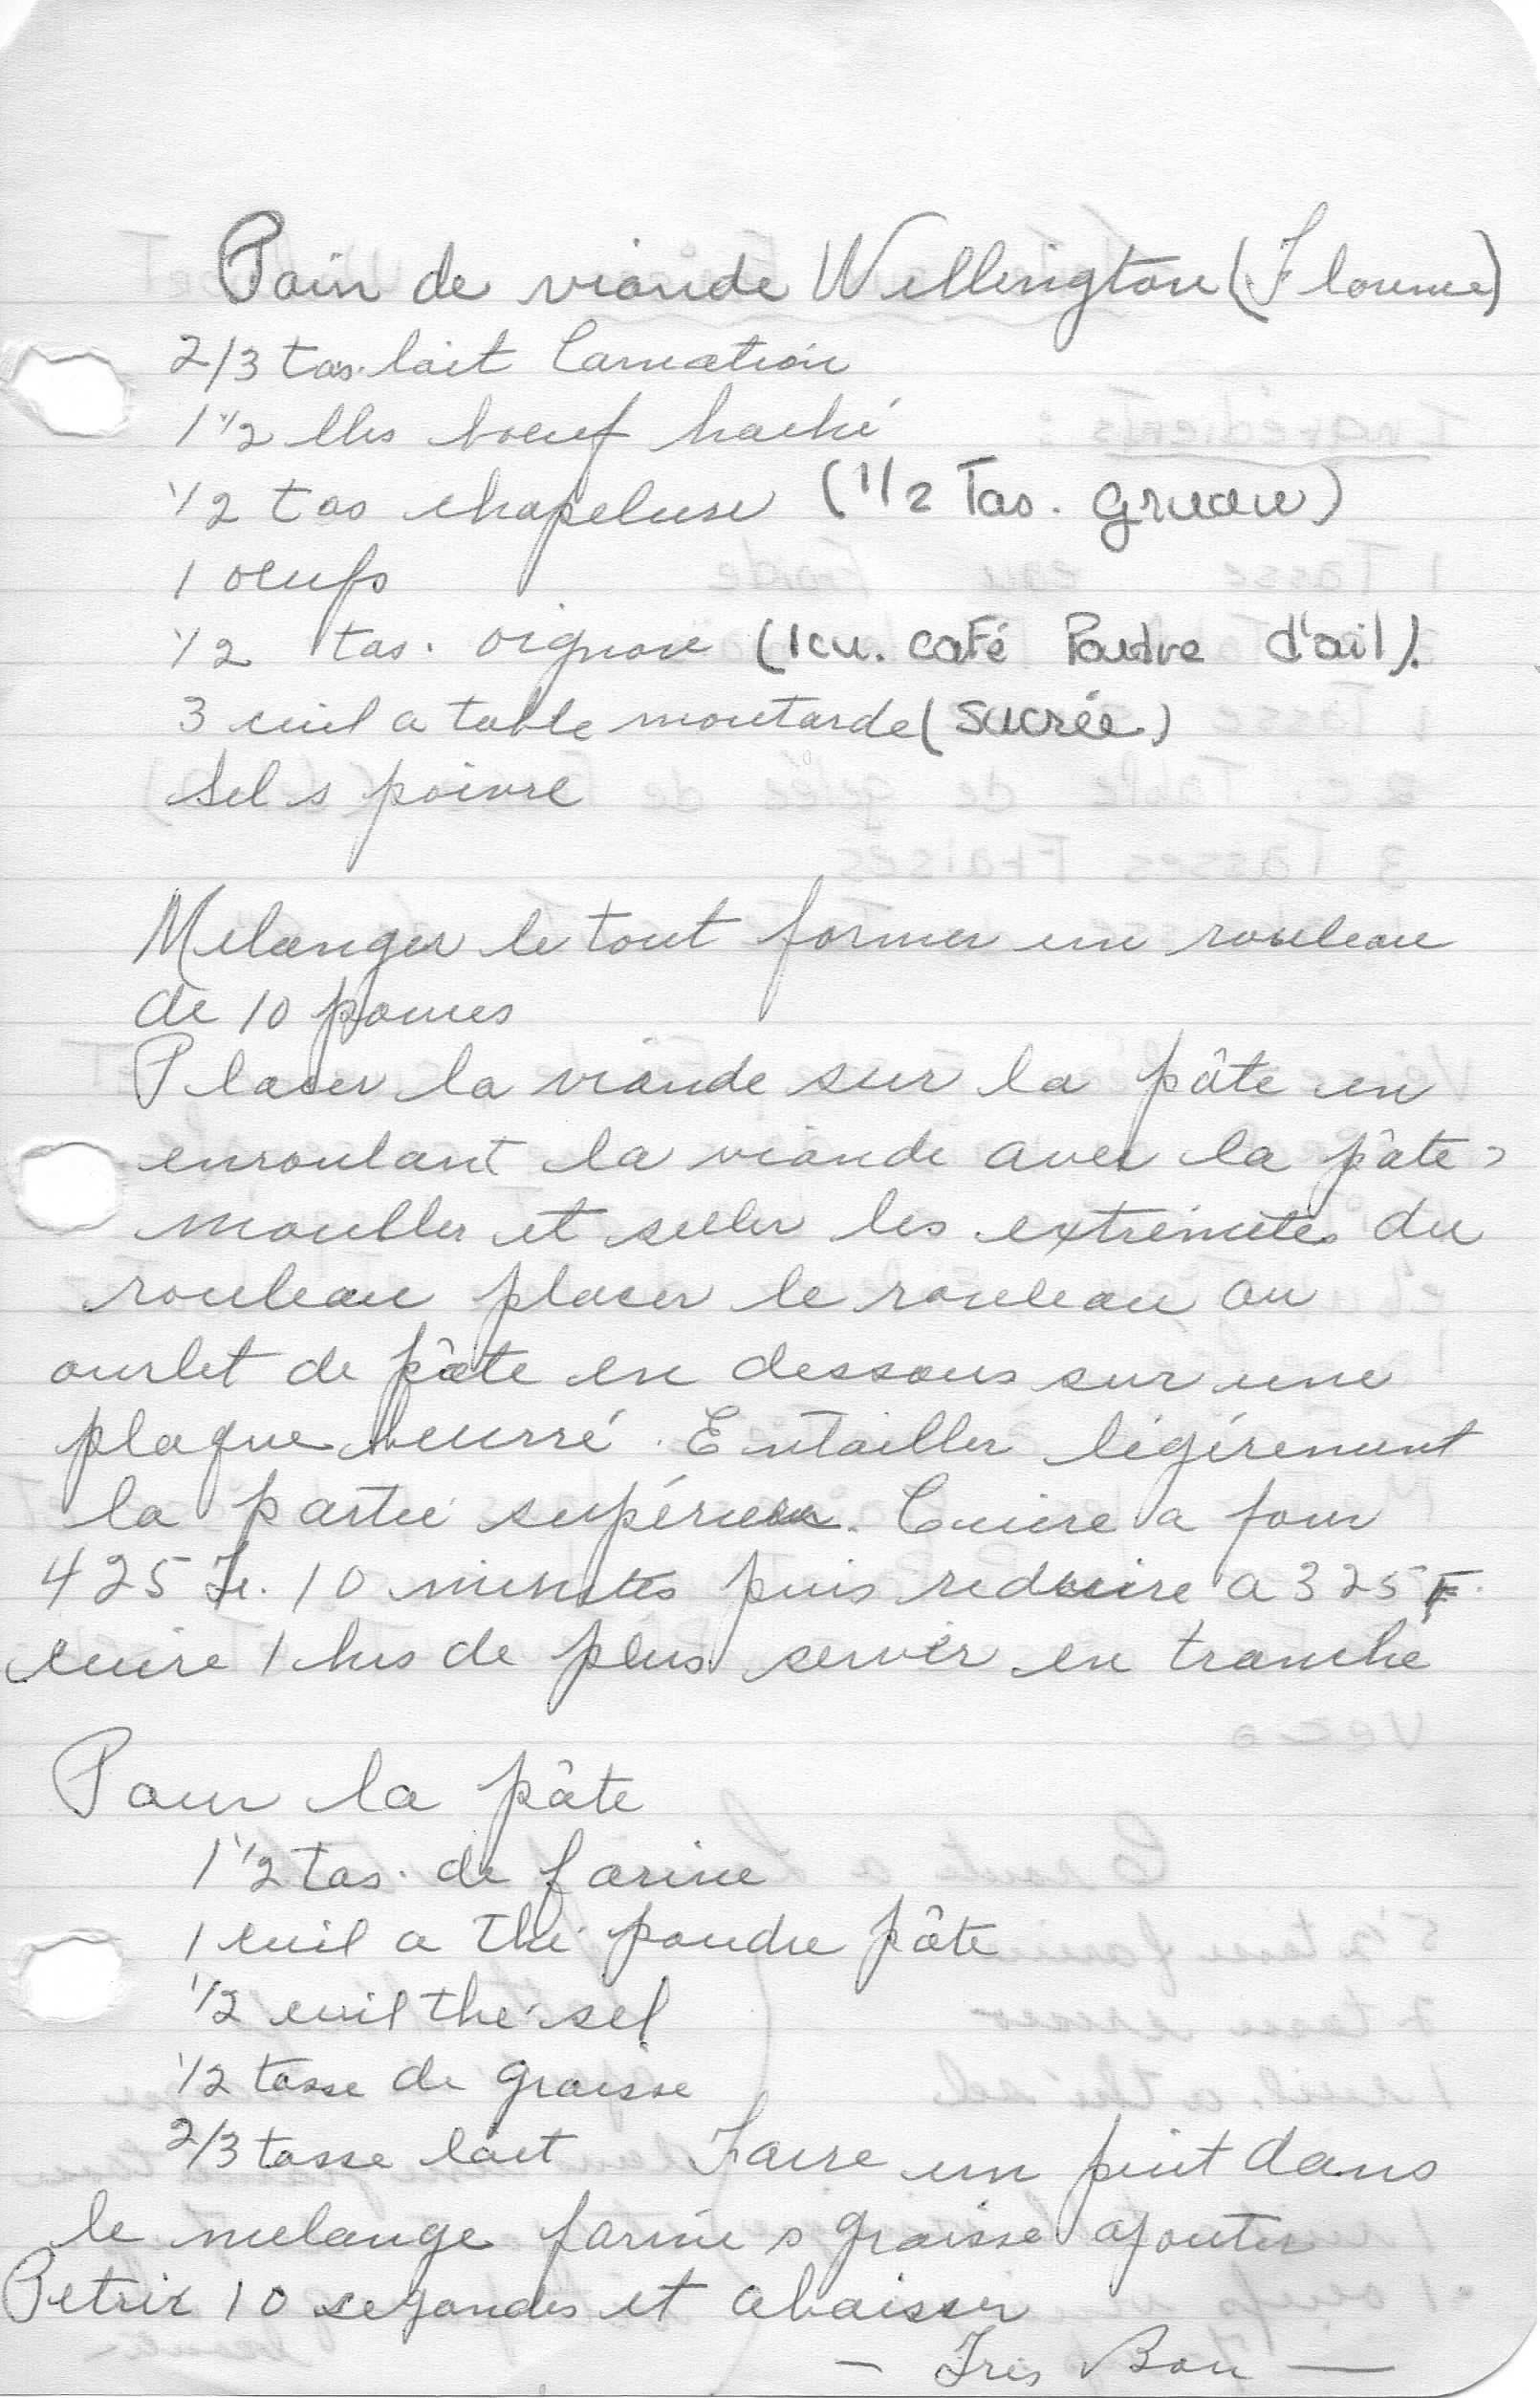 Pain de viande Wellington (Florence)
2/3 tas. lait Carnation
1 1/2 lbs boeuf haché
1/2 tas chapelure (1/2 Tas. gruau)
1 oeufs
1/2 tas. oignon (1 cu. café Poudre d'ail).
3 cuil a table moutarde (sucrée)
Sel s poivre
Melanger le tout former un rouleau
de 10 pouces
Placer la viande sur la pâte en
enroulant la viande avec la pâte,
mouller et seller les extrémités du
rouleau placer le rouleau au
ourlet de pâte en dessous sur une
plaque beurré. Entailler légérement
la partie supérieur. Cuire a four
425 Fr. 10 minutes puis reduire a 325 F.
cuire 1 hrs de plus servir en tranche
Pour la pâte
1 1/2 tas. de farine
1 cuil a thé poudre pâte
1/2 cuil thé sel
1/2 tasse de graisse
2/3 tasse lait Faire un puit dans
le melange farine s graisse ajouter
Petrir 10 segondes et abaisser
- Très Bon -